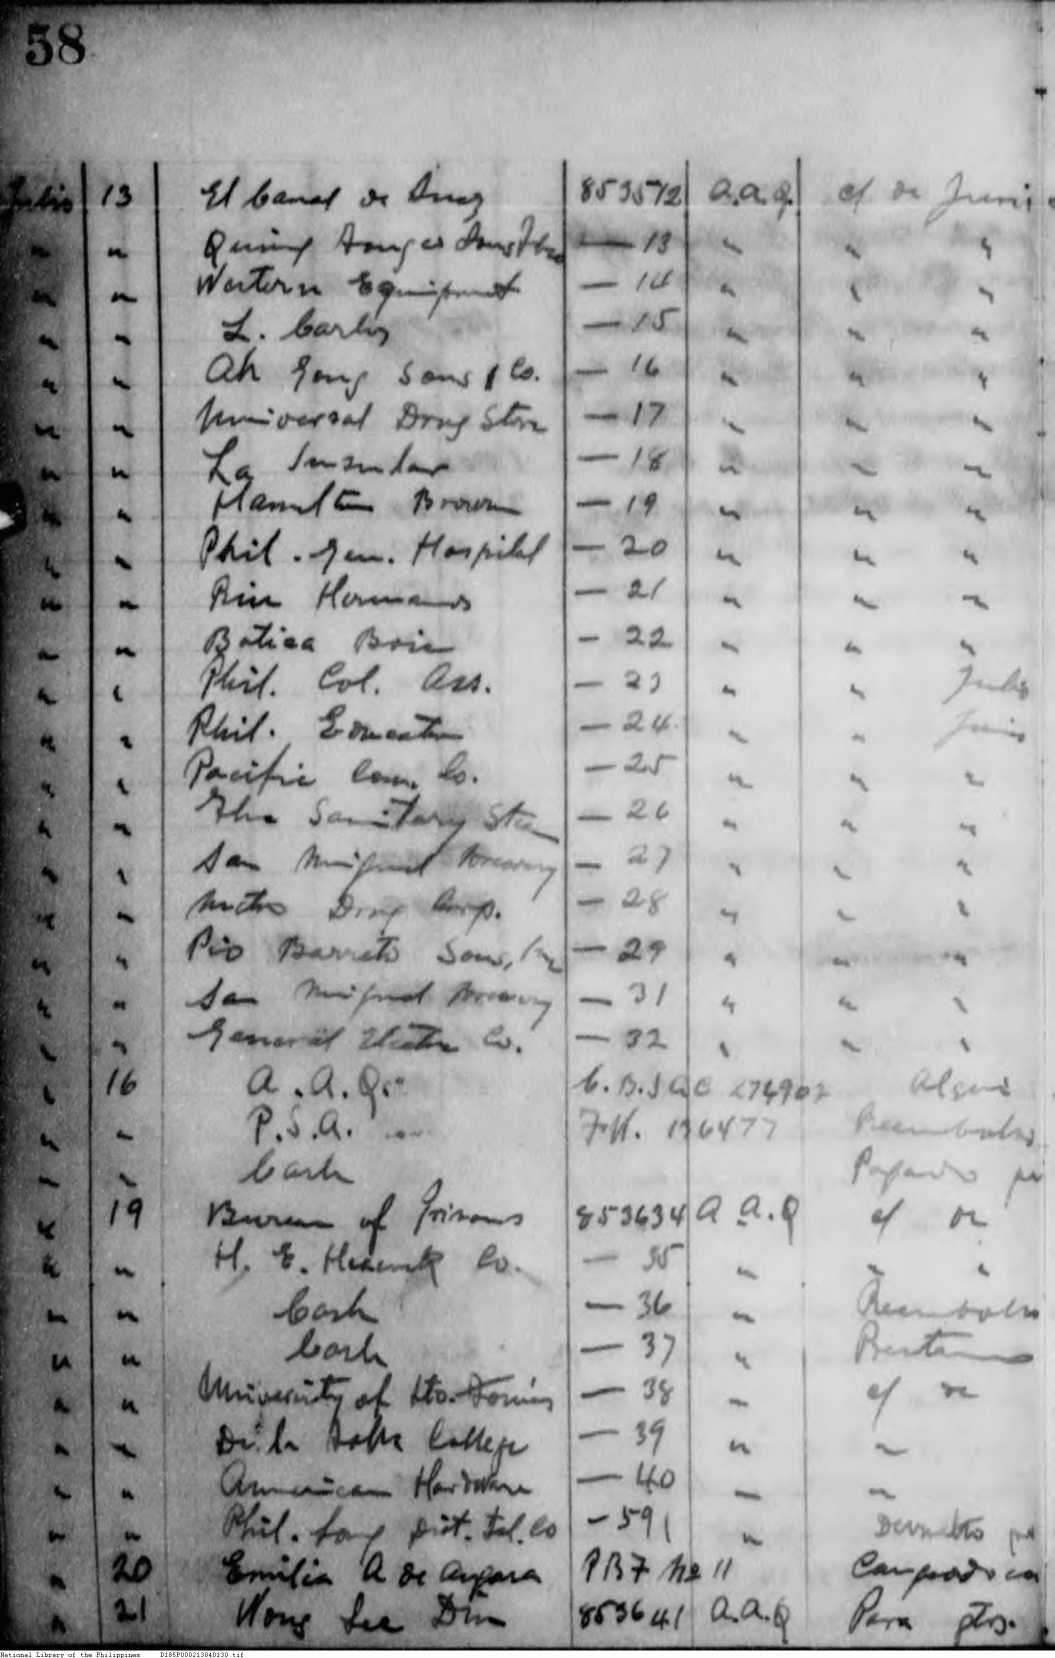 58
Julio 13 El Canal de Suez 853512 A.A.Q. c/ de Junio
" " Quing 13 " " "
" " Western Equipment — 14 " " "
" " L. Carlos — 15 " " "
" " Ah Gong Sons & Co. — 16 " " "
" " Universal Drug Store — 17 " " "
" " La Insular — 18 " " "
" " Hamilton Brown — 19 " " "
" " Phil. Gen. Hospital — 20 " " "
" " Riu Hermanos — 21 " " "
" " Botica Boie — 22 " " "
" " Phil. Col. Ass. — 23 " " Julio
" " Phil. Education — 24 " " Junio
" " Pacific Com. Co. — 25 " " "
" " The Sanitary Steam — 26 " " "
" " San Miguel Brewery — 27 " " "
" " Metro Drug Corp. — 28 " " "
" " Pio Barretto Sons, Inc — 29 " " "
" " San Miguel Brewery — 31 " " "
" " General Electric Co. — 32 " " "
" 16 A.A.Q. 274902
" " P.S.A. 136477 Reembolso
" " Cash Pagado
" 19 Bureau of Prisons 853634 A.A.Q c/ de
" " H. E. Heacock Co. — 35 " " "
" " Cash — 36 " Reembolso
" " Cash — 37 " Prestamo
" " University of Sto. Tomás — 38 " c/ de
" " De la Salle College — 39 " "
" " American Hardware — 40 " "
" " Phil. Long Dist. Tel. Co — 591 "
" 20 Emilia A de Angara PB7 No 11
" 21 Wong See Dim 853641 A.A.Q Para gtos.
National Library of the Philippines D185P000213840130.tif